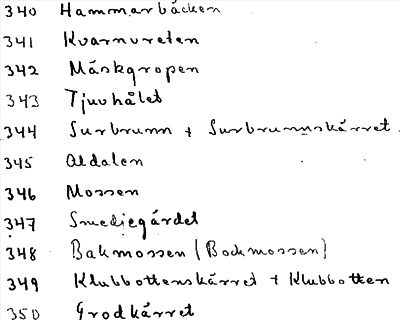 340 Hammarbäcken
341 Kvarnvreten
342 Måskgropen
343 Tjuvhålet
344 Surbrunn + Surbrunnskärret.
345 Aldalen
346 Mossen
347 Smedjegärdet
348 Bakmossen (Bockmossen)
349 Klubbottenskärret + Klubbotten
350 Grodkärret